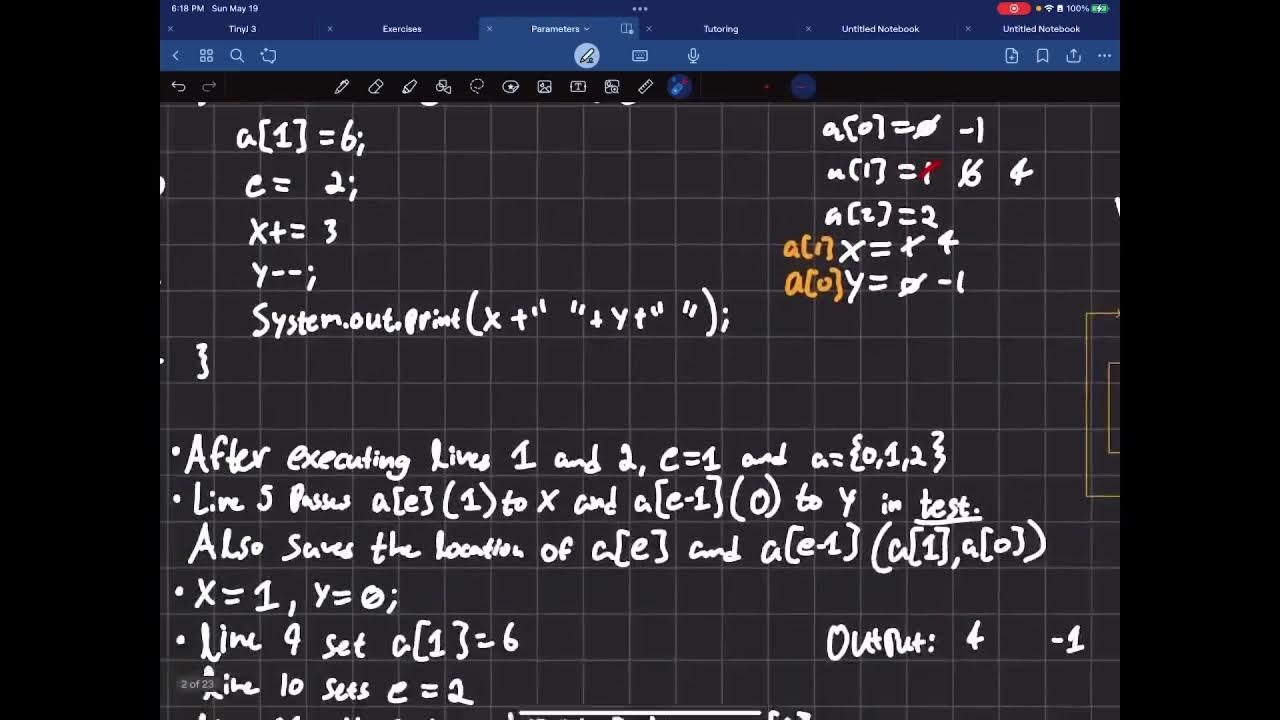 6:18 PM Sun May 19
100%
TinyJ 3
Exercises
Parameters
Tutoring
Untitled Notebook
Untitled Notebook
a[1] = 6;
e = 2;
x+= 3
y--;
System.out.print(x +" "+ y+" ");
}
a[0] = 0 -1
a[1] = 1 6 4
a[2] = 2
a[1] x = 1 4
a[0] y = 0 -1
• After executing lines 1 and 2, e=1 and a={0,1,2}
• Line 5 Passes a[e](1) to x and a[e-1](0) to y in test.
Also saves the location of a[e] and a[e-1] (a[1],a[0])
• x = 1, y = 0;
• Line 9 set a[1] = 6
Line 10 sets e = 2
Output: 4 -1
2 of 23